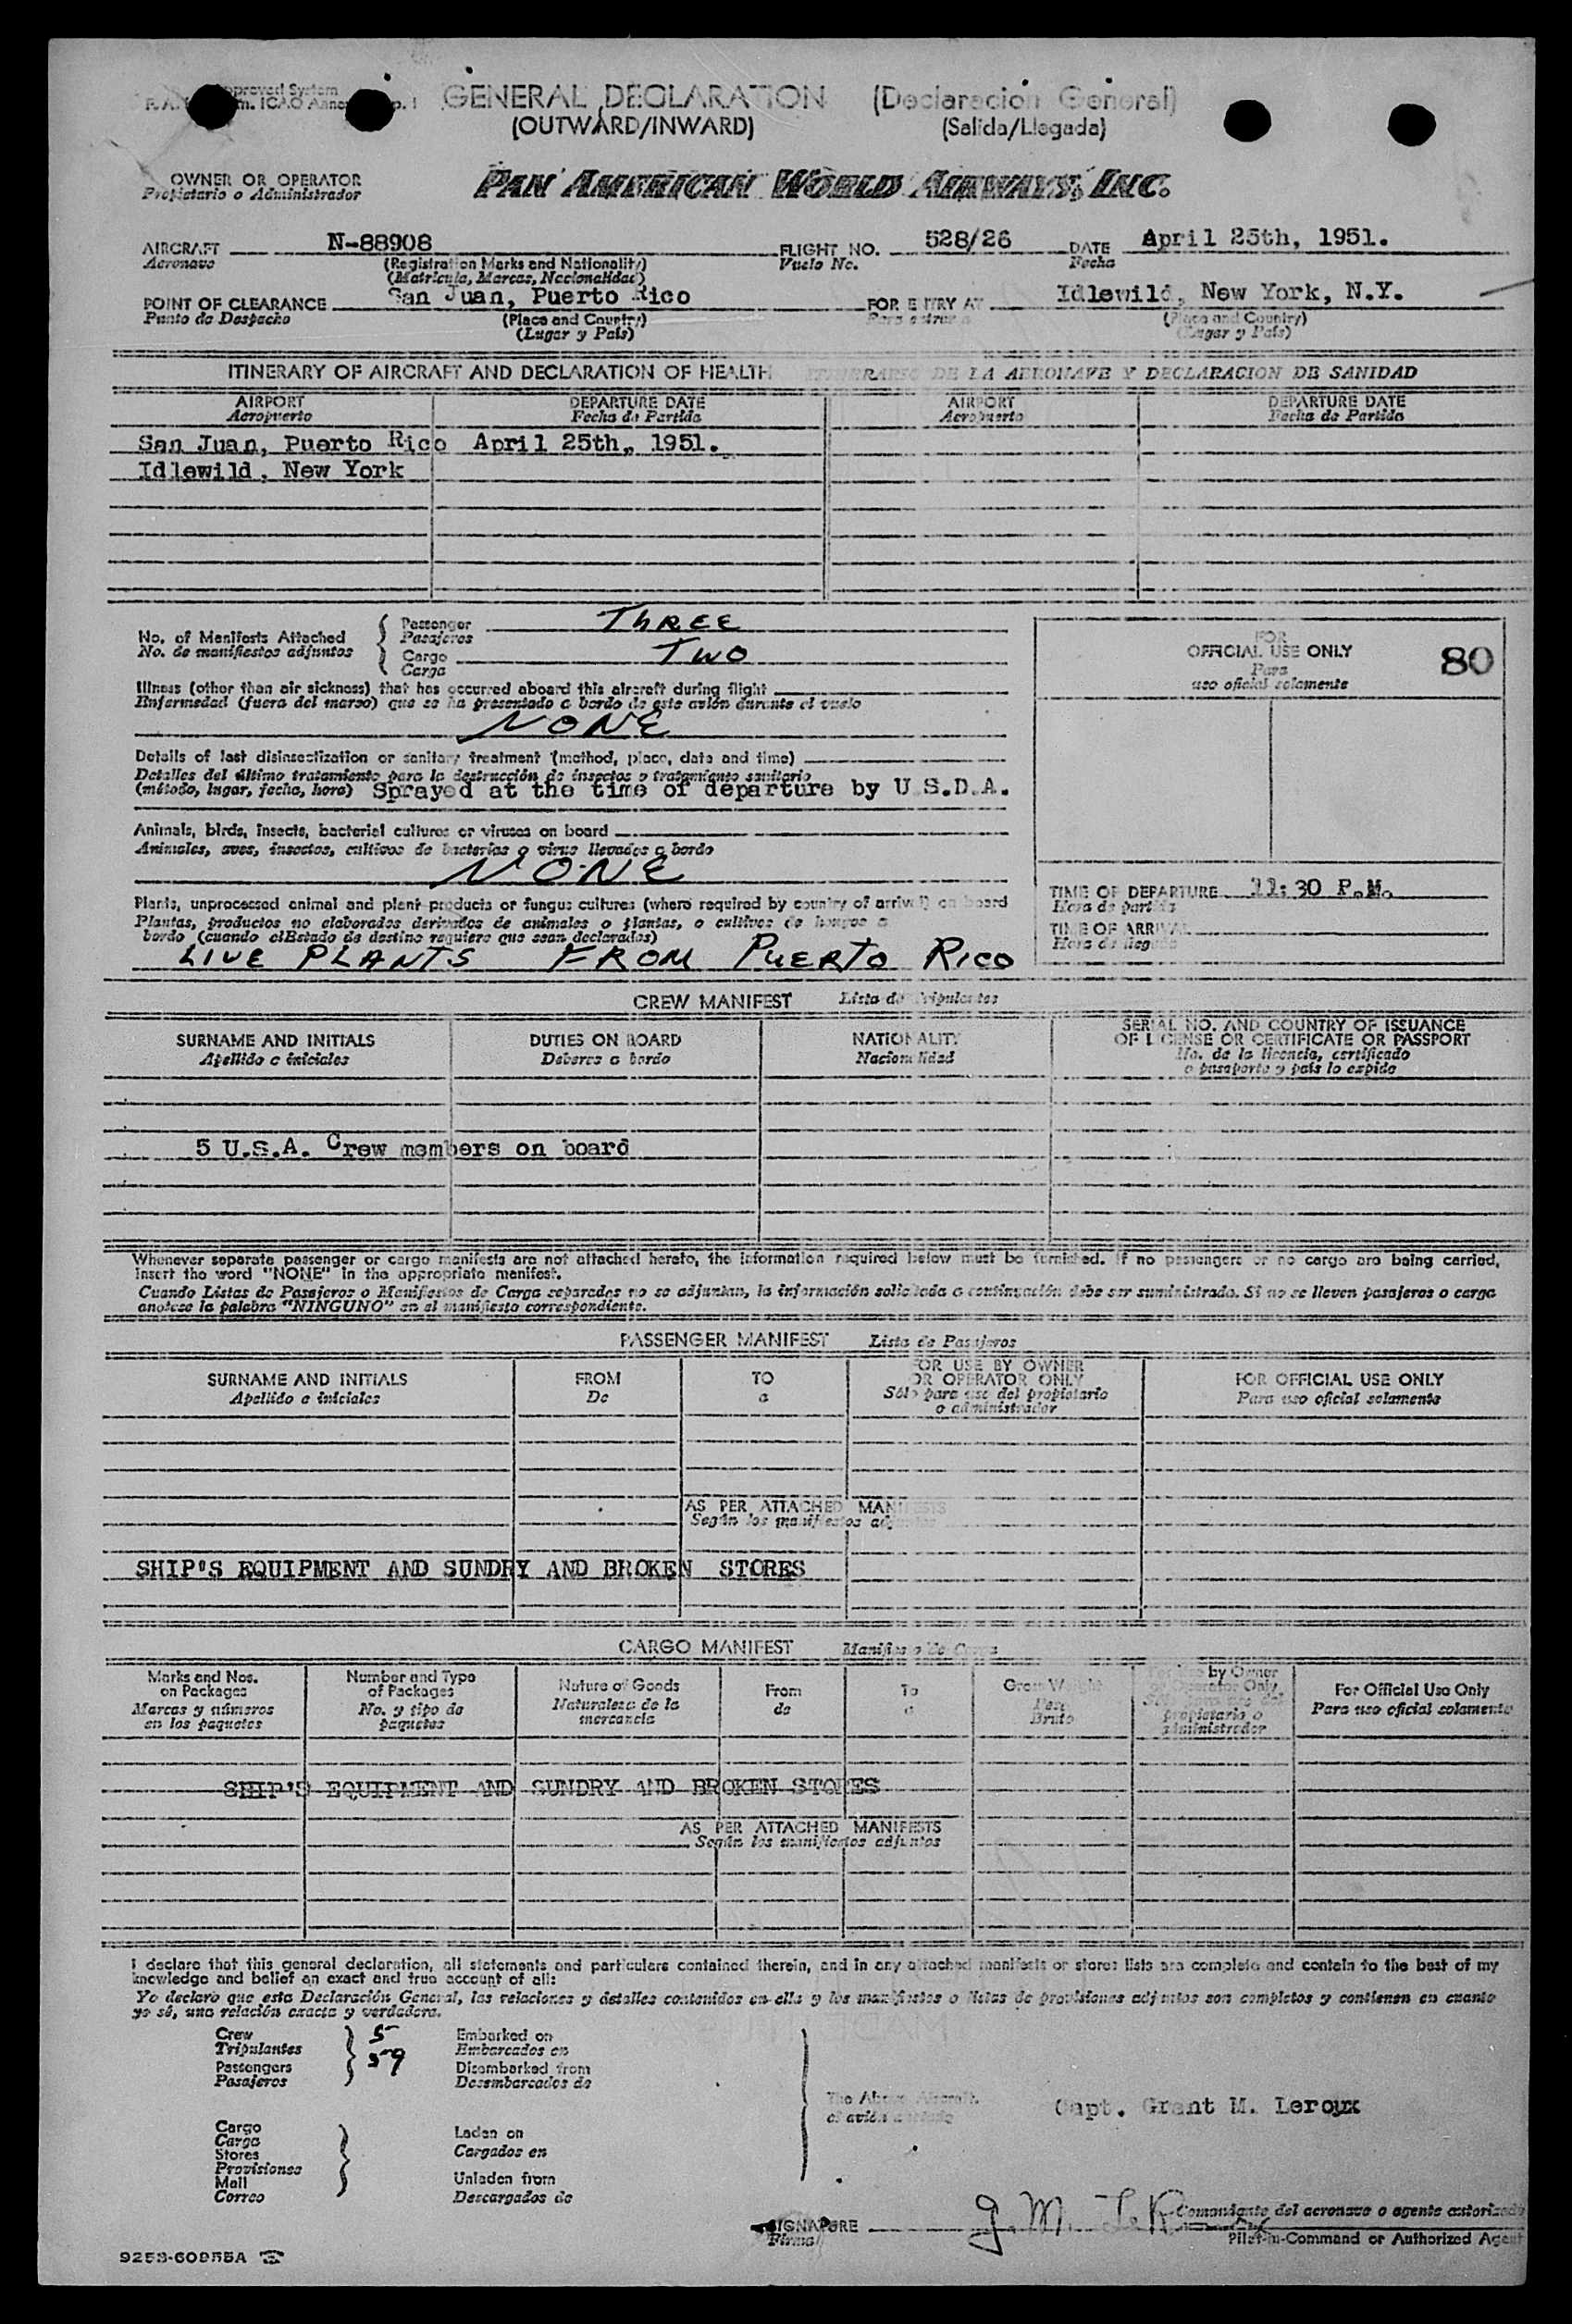 GENERAL DECLARATION (Declaracion General)
(OUTWARD/INWARD) (Salida/Llegada)
OWNER OR OPERATOR
Propietario o Administrador
PAN AMERICAN WORLD AIRWAYS, INC.
AIRCRAFT N-88908 FLIGHT NO. 528/26 DATE April 25th, 1951.
Aeronave (Registration Marks and Nationality) Vuelo No. Fecha
(Matricula, Marcas, Nacionalidad)
POINT OF CLEARANCE San Juan, Puerto Rico FOR ENTRY AT Idlewild, New York, N.Y.
Punto de Despacho (Place and Country) Para entrar a (Place and Country)
(Lugar y País) (Lugar y País)
ITINERARY OF AIRCRAFT AND DECLARATION OF HEALTH ITINERARIO DE LA AERONAVE Y DECLARACION DE SANIDAD
AIRPORT DEPARTURE DATE AIRPORT DEPARTURE DATE
Aeropuerto Fecha de Partida Aeropuerto Fecha de Partida
San Juan, Puerto Rico April 25th, 1951.
Idlewild, New York
No. of Manifests Attached
No. de manifiestos adjuntos
Passenger THREE
Pasajeros
Cargo TWO
Carga
FOR
OFFICIAL USE ONLY 80
Para
uso oficial solamente
Illness (other than air sickness) that has occurred aboard this aircraft during flight
Enfermedad (fuera del mareo) que se ha presentado a bordo de este avión durante el vuelo
NONE
Details of last disinsectization or sanitary treatment (method, place, date and time)
Detalles del último tratamiento para la destrucción de insectos o tratamiento sanitario
(método, lugar, fecha, hora) Sprayed at the time of departure by U.S.D.A.
Animals, birds, insects, bacterial cultures or viruses on board
Animales, aves, insectos, cultivos de bacterias o virus llevados a bordo
NONE
Plants, unprocessed animal and plant products or fungus cultures (where required by country of arrival) on board
Plantas, productos no elaborados derivados de animales o plantas, o cultivos de hongos a
bordo (cuando el Estado de destino requiere que sean declarados)
LIVE PLANTS FROM PUERTO RICO
TIME OF DEPARTURE 11:30 P.M.
Hora de partida
TIME OF ARRIVAL
Hora de llegada
CREW MANIFEST Lista de Tripulantes
SURNAME AND INITIALS DUTIES ON BOARD NATIONALITY SERIAL NO. AND COUNTRY OF ISSUANCE
OF LICENSE OR CERTIFICATE OR PASSPORT
Apellido e iniciales Deberes a bordo Nacionalidad No. de la licencia, certificado
o pasaporte y país lo expide
5 U.S.A. Crew members on board
Whenever separate passenger or cargo manifests are not attached hereto, the information required below must be furnished. If no passengers or no cargo are being carried,
insert the word "NONE" in the appropriate manifest.
Cuando Listas de Pasajeros o Manifiestos de Carga separados no se adjuntan, la información solicitada a continuación debe ser suministrada. Si no se lleven pasajeros o carga
anótese la palabra "NINGUNO" en el manifiesto correspondiente.
PASSENGER MANIFEST Lista de Pasajeros
SURNAME AND INITIALS FROM TO FOR USE BY OWNER OR OPERATOR ONLY FOR OFFICIAL USE ONLY
Apellido e iniciales De a Sólo para uso del propietario o administrador Para uso oficial solamente
AS PER ATTACHED MANIFESTS
Según los manifiestos adjuntos
SHIP'S EQUIPMENT AND SUNDRY AND BROKEN STORES
CARGO MANIFEST Manifiesto de Carga
Marks and Nos. on Packages Number and Type of Packages Nature of Goods From To Gross Weight For Use by Owner or Operator Only For Official Use Only
Marcas y números en los paquetes No. y tipo de paquetes Naturaleza de la mercancía de a Peso Bruto Sólo para uso del propietario o administrador Para uso oficial solamente
SHIP'S EQUIPMENT AND SUNDRY AND BROKEN STORES
AS PER ATTACHED MANIFESTS
Según los manifiestos adjuntos
I declare that this general declaration, all statements and particulars contained therein, and in any attached manifests or stores lists are complete and contain to the best of my
knowledge and belief an exact and true account of all:
Yo declaro que esta Declaración General, las relaciones y detalles contenidos en ella y los manifiestos o listas de provisiones adjuntos son completos y contienen en cuanto
yo sé, una relación exacta y verdadera.
Crew 5 Embarked on
Tripulantes Embarcados en
Passengers 59 Disembarked from
Pasajeros Desembarcados de
The Above Aircraft.
el avión
Capt. Grant M. Leroux
Cargo Laden on
Carga Cargados en
Stores
Provisiones
Mail Unladen from
Correo Descargados de
SIGNATURE
Firma
Comandante del aeronave o agente autorizado
Pilot-in-Command or Authorized Agent
9253-60955A